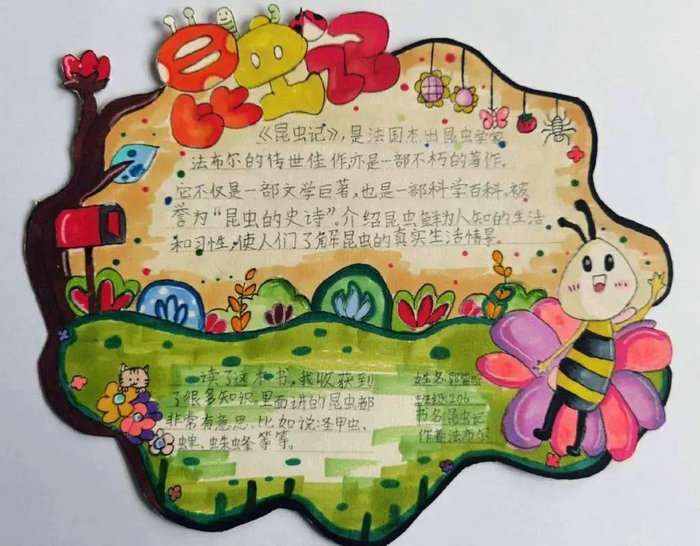 昆虫记
《昆虫记》,是法国杰出昆虫学家
法布尔的传世佳作亦是一部不朽的著作。
它不仅是一部文学巨著,也是一部科学百科。被
誉为“昆虫的史诗”。介绍昆虫鲜为人知的生活
和习性,使人们了解昆虫的真实生活情景。
读了这本书,我收获到
了很多知识里面讲的昆虫都
非常有意思,比如说圣甲虫、
蝗、蛛蜂等等。
姓名
班级206
书名昆虫记
作者法布尔